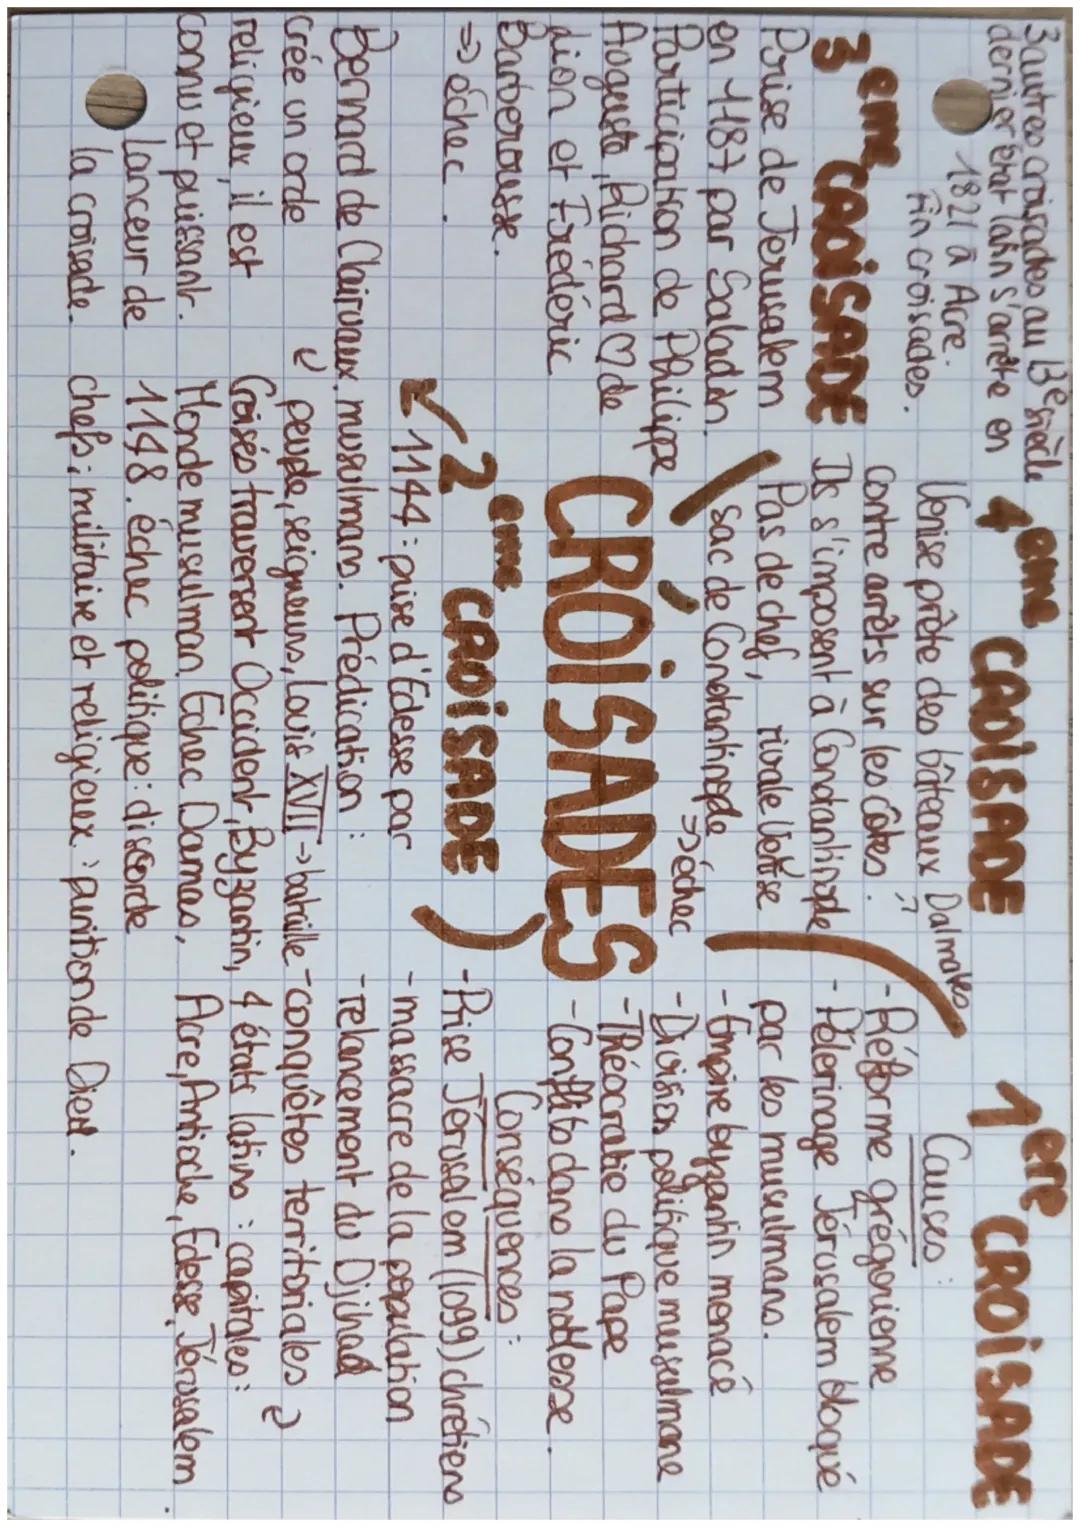 3 autres croisades au 13e siècle
dernier état latin s'arrête en
1821 à Acre.
Fin croisades.
3eme CROISADE
Prise de Jerusalem
en 1187 par Saladin.
Participation de Philippe
Auguste, Richard ♡ de
lion et Frédéric
Barberousse.
=> échec.
4eme CROISADE
Venise prête des bâteaux
contre arrêts sur les côtes. Dalmates
Ils s'imposent à Constantinople
Pas de chef, rivale Venise
sac de Constantinople
=> échec
1ere CROISADE
Causes :
- Réforme grégorienne
- Pélerinage Jérusalem bloqué
par les musulmans.
- Empire byzantin menacé
- Division politique musulmane
- Théocratie du Pape
- Conflits dans la noblesse.
Conséquences :
- Prise Jérusalem (1099) chrétiens
- massacre de la population
- relancement du Djihad
- conquêtes territoriales
4 états latins : capitales :
Acre, Antioche, Edesse, Jérusalem.
CROISADES
2eme CROISADE
1144 : prise d'Edesse par
musulmans. Prédication :
peuple, seigneurs, Louis XVII -> bataille
Croisés traversent Occident, Byzantin,
Monde musulman. Echec Damas,
1148. échec politique : discorde
chefs ; militaire et religieux : punition de Dieu.
Bernard de Clairvaux
crée un orde
religieux, il est
connu et puissant.
Lanceur de
la croisade.